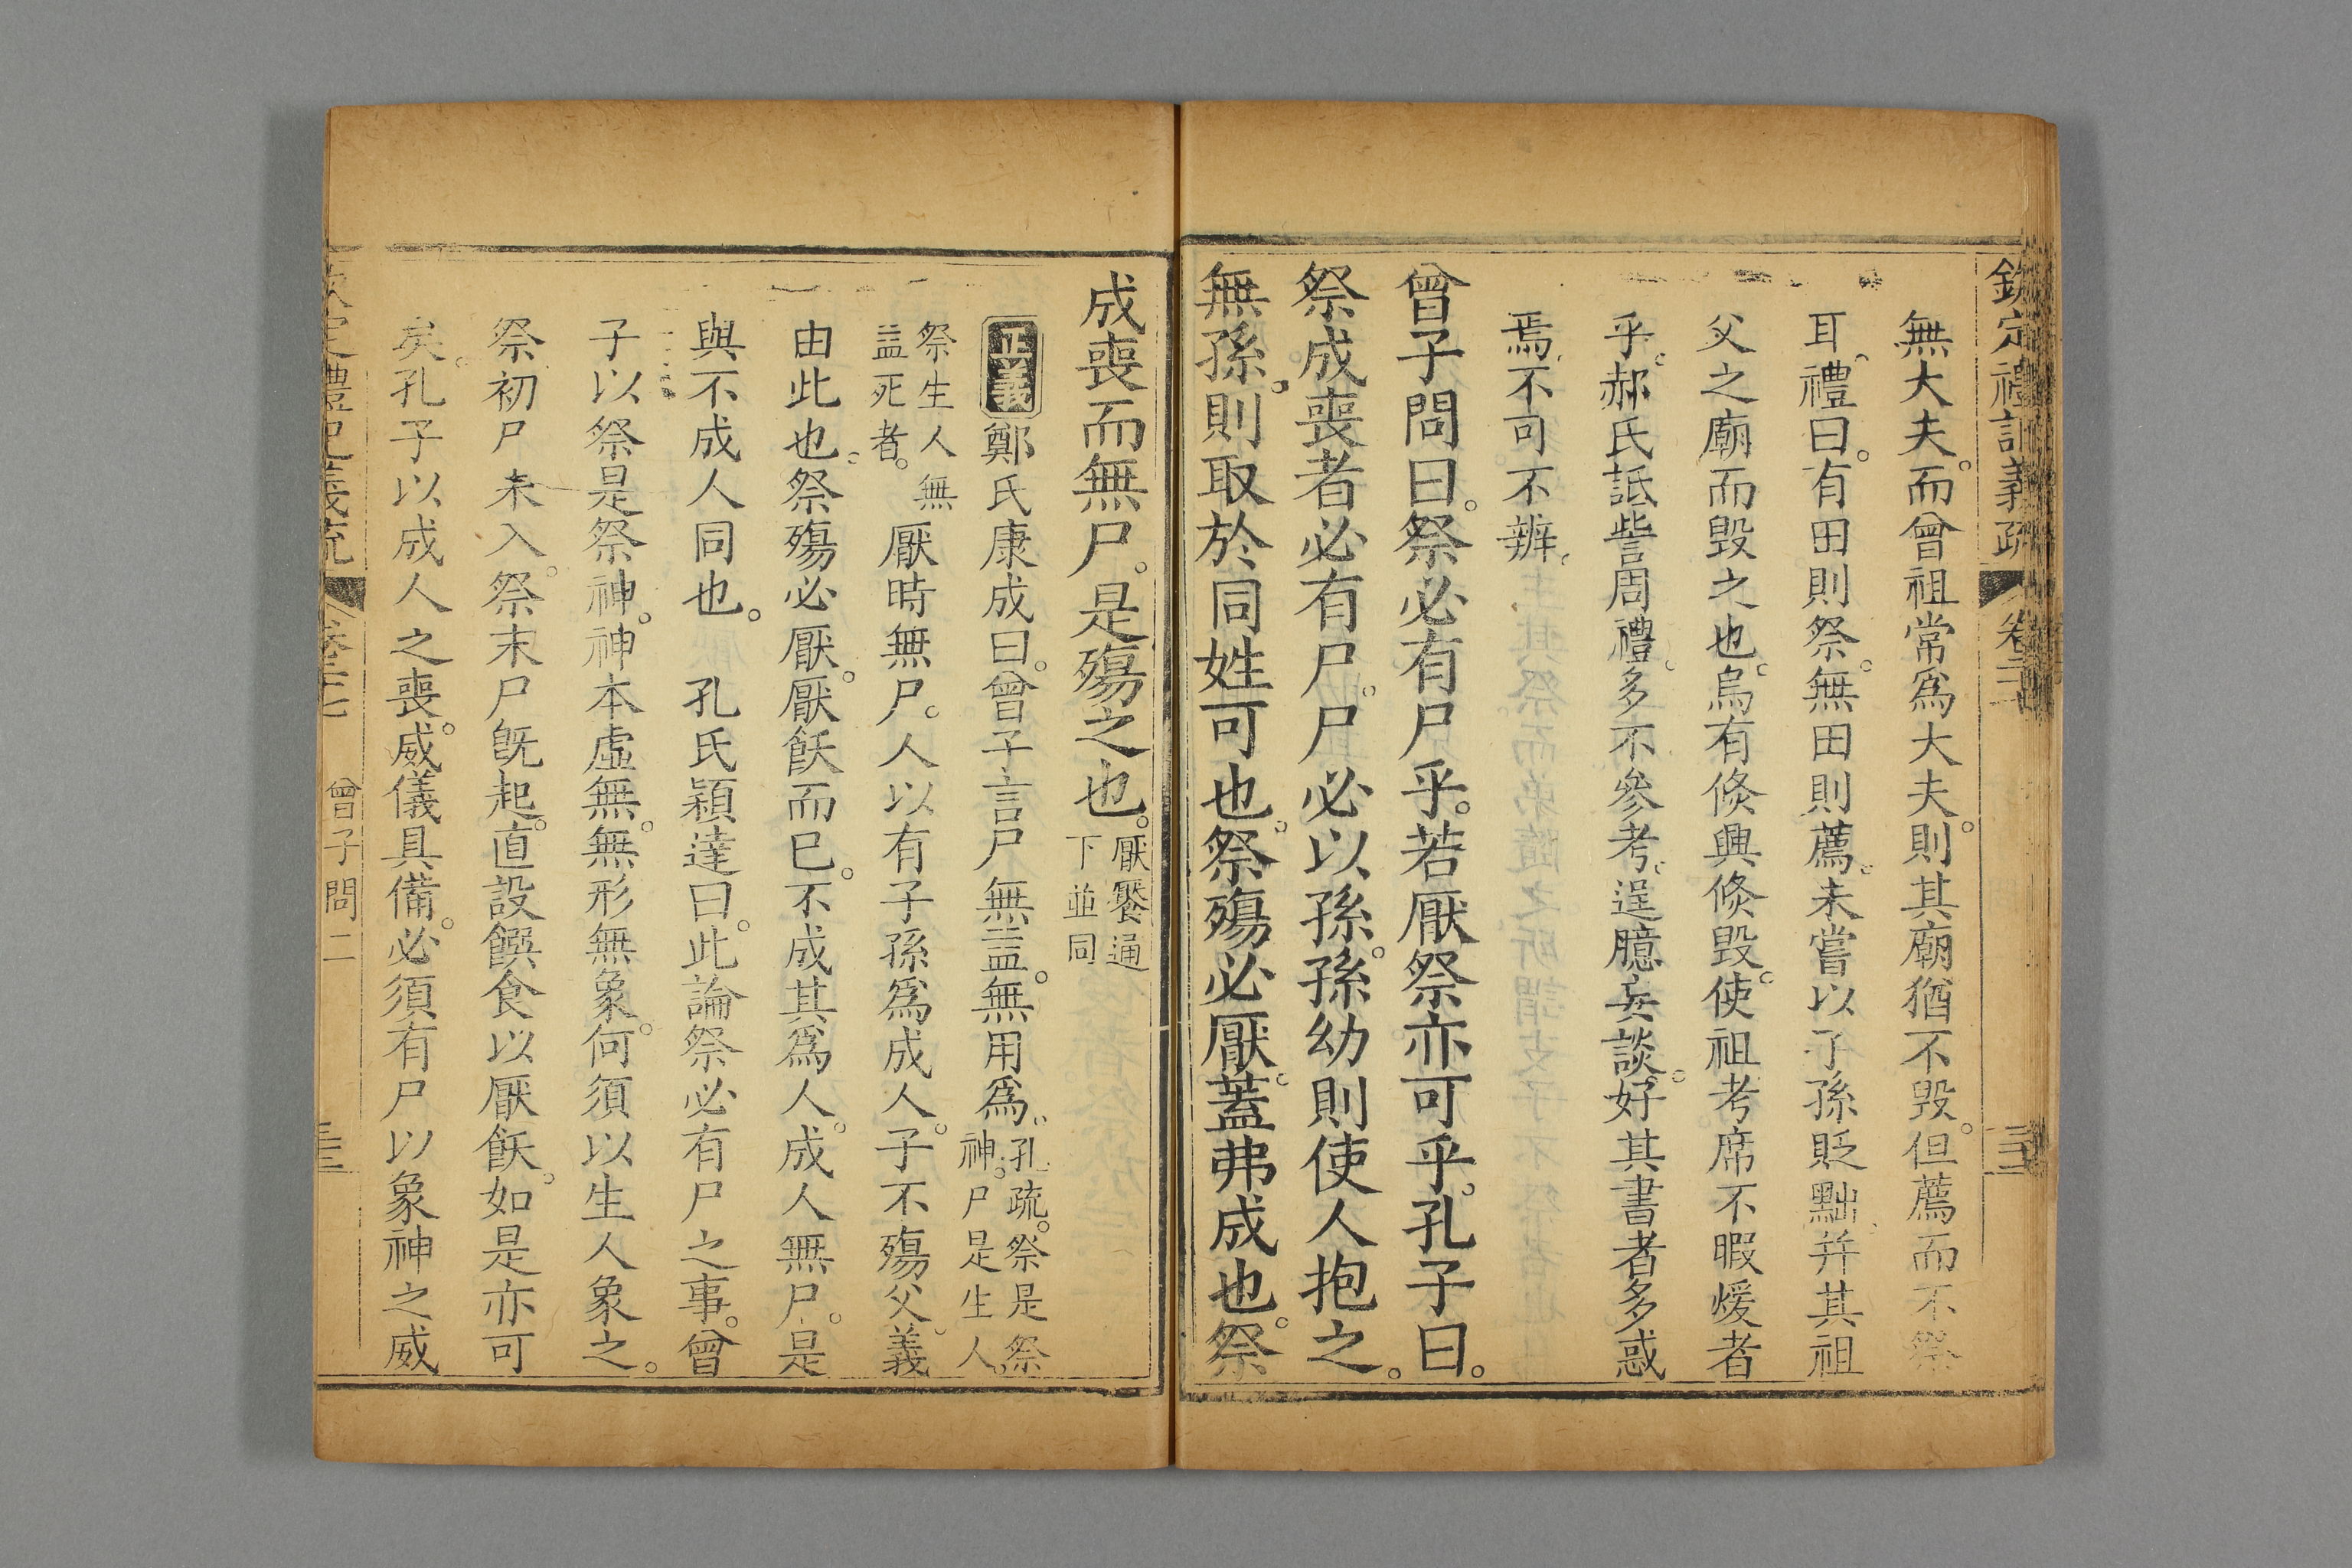 欽定禮記義疏 卷二十
無大夫而曾祖常為大夫則其廟猶不毀但薦而不祭
耳禮曰有田則祭無田則薦未嘗以子孫貶黜并其祖
父之廟而毀之也烏有倐興倐毀使祖考席不暇煖者
乎郝氏詆訾周禮多不參考逞臆妄談好其書者多惑
焉不可不辨
曾子問曰祭必有尸乎若厭祭亦可乎孔子曰
祭成喪者必有尸尸必以孫孫幼則使人抱之
無孫則取於同姓可也祭殤必厭蓋弗成也祭
成喪而無尸是殤之也厭饜通下並同
正義鄭氏康成曰曾子言尸無益無用為孔疏祭是祭神尸是生人
祭生人無益死者厭時無尸人以有子孫為成人子不殤父義
由此也祭殤必厭厭飫而已不成其為人成人無尸是
與不成人同也 孔氏穎達曰此論祭必有尸之事曾
子以祭是祭神神本虛無無形無象何須以生人象之
祭初尸未入祭末尸旣起直設饌食以厭飫如是亦可
矣孔子以成人之喪威儀具備必須有尸以象神之威
定禮記義疏 曾子問二